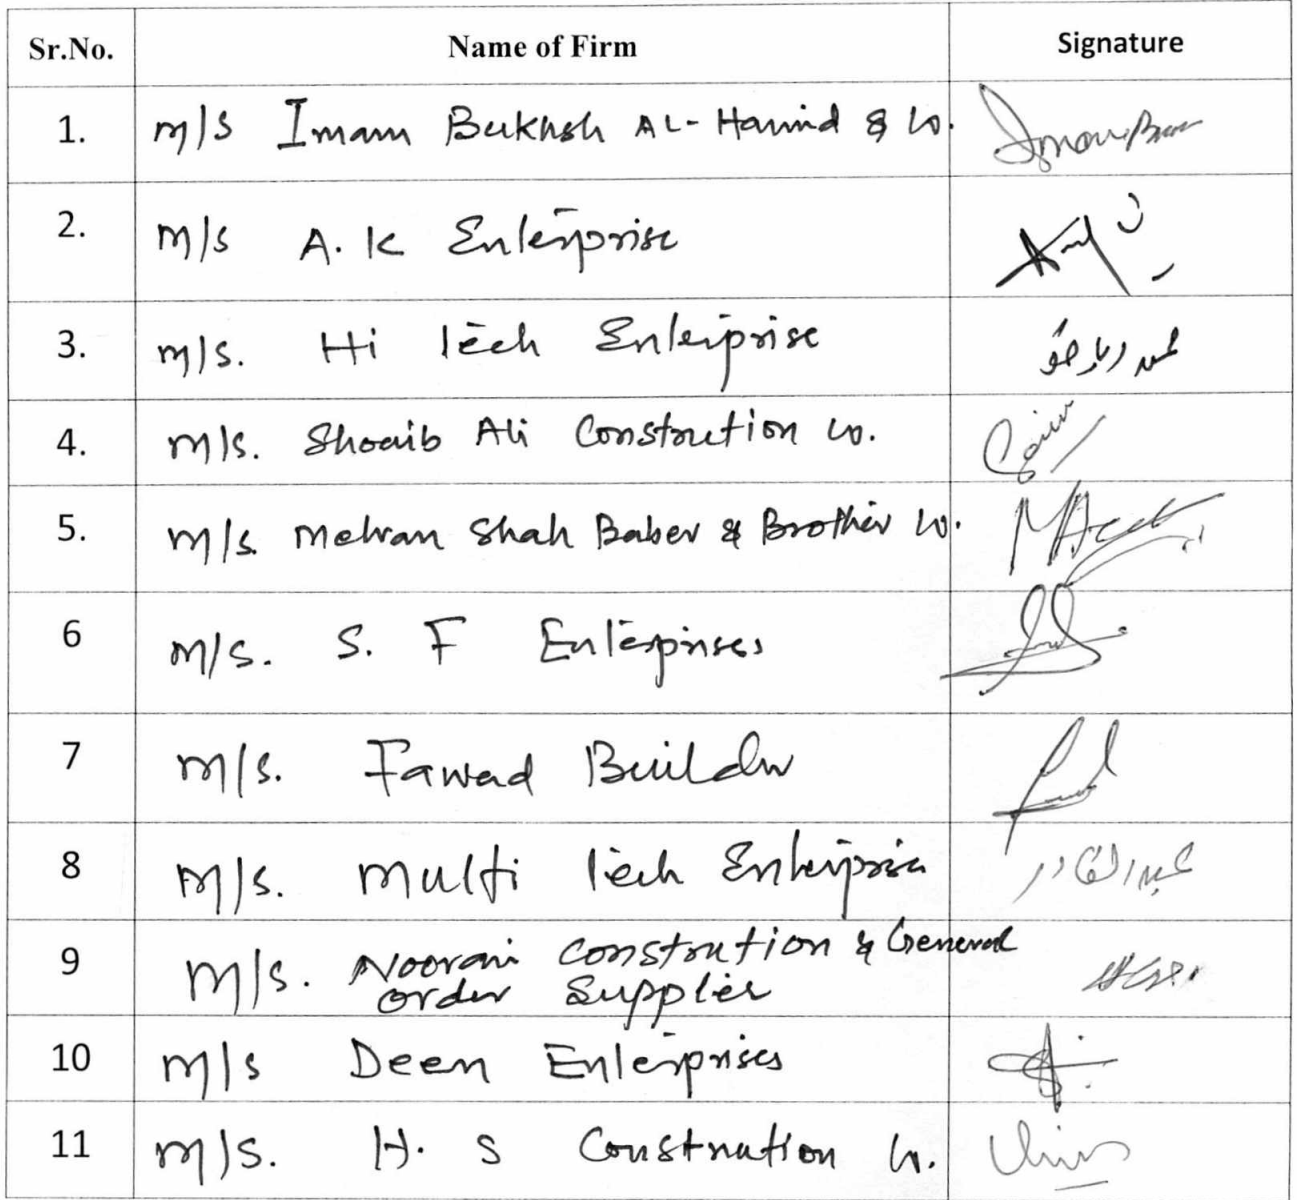 Sr.No. Name of Firm Signature
1. M/S Imam Bukhsh AL-Hamid & Co.
2. M/s A. K Enterprise
3. M/s. Hi Tech Enterprise
4. M/s. Shoaib Ali Constrution Co.
5. M/s. Mehran Shah Baber & Brother Co.
6 M/s. S. F Enterprises
7 M/s. Fawad Builder
8 M/s. Multi Tech Enterprise عبدالقادر
9 M/s. Noorani Constrution & General
Order Supplier
10 M/s Deen Enterprises
11 M/s. H. S Constrution Co.